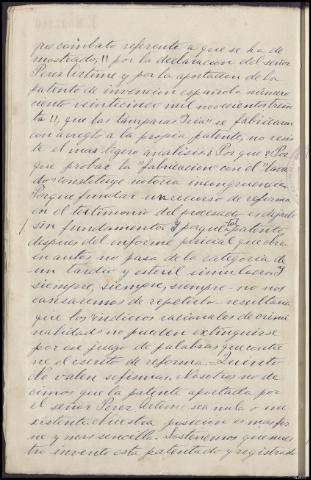 que combato referente a que se ha de
mostrado, !! por la declaración del señor
Perez Ustime y por la aportation de la
patente de invención española número
ciento veinticinco mil novecientos trein
ta !!, que las lamparas Fria se fabricaran
con arreglo a la propia patente, no resis
te el mas ligero analisis: Porque? Por
que probar la "fabricacion" con el
do constituye notoria incongruencia.
Porque fundar un recurso de reforma
en el testimonio del procesado, es dejarlo
sin fundamento: y porque tal patente,
despues del informe pericial que obra
en autos, no pasa de la categoria de
un tardio y esteril simulacro. Y
siempre, siempre, siempre - no nos
cansaremos de repetirlo - resultaria
que los indicios racionales de crimi
nalidad no pueden extinguirse
por ese juego de palabras que contie
ne el escrito de reforma. Quinto
No valen sofismas. Nosotros no de
cimos que la patente aportada por
el señor Perez sea nula o ine
xistente. Nuestra posicion es mas fir
me y mas sencilla. Sostenemos que nues
tro invento esta patentado y registrado